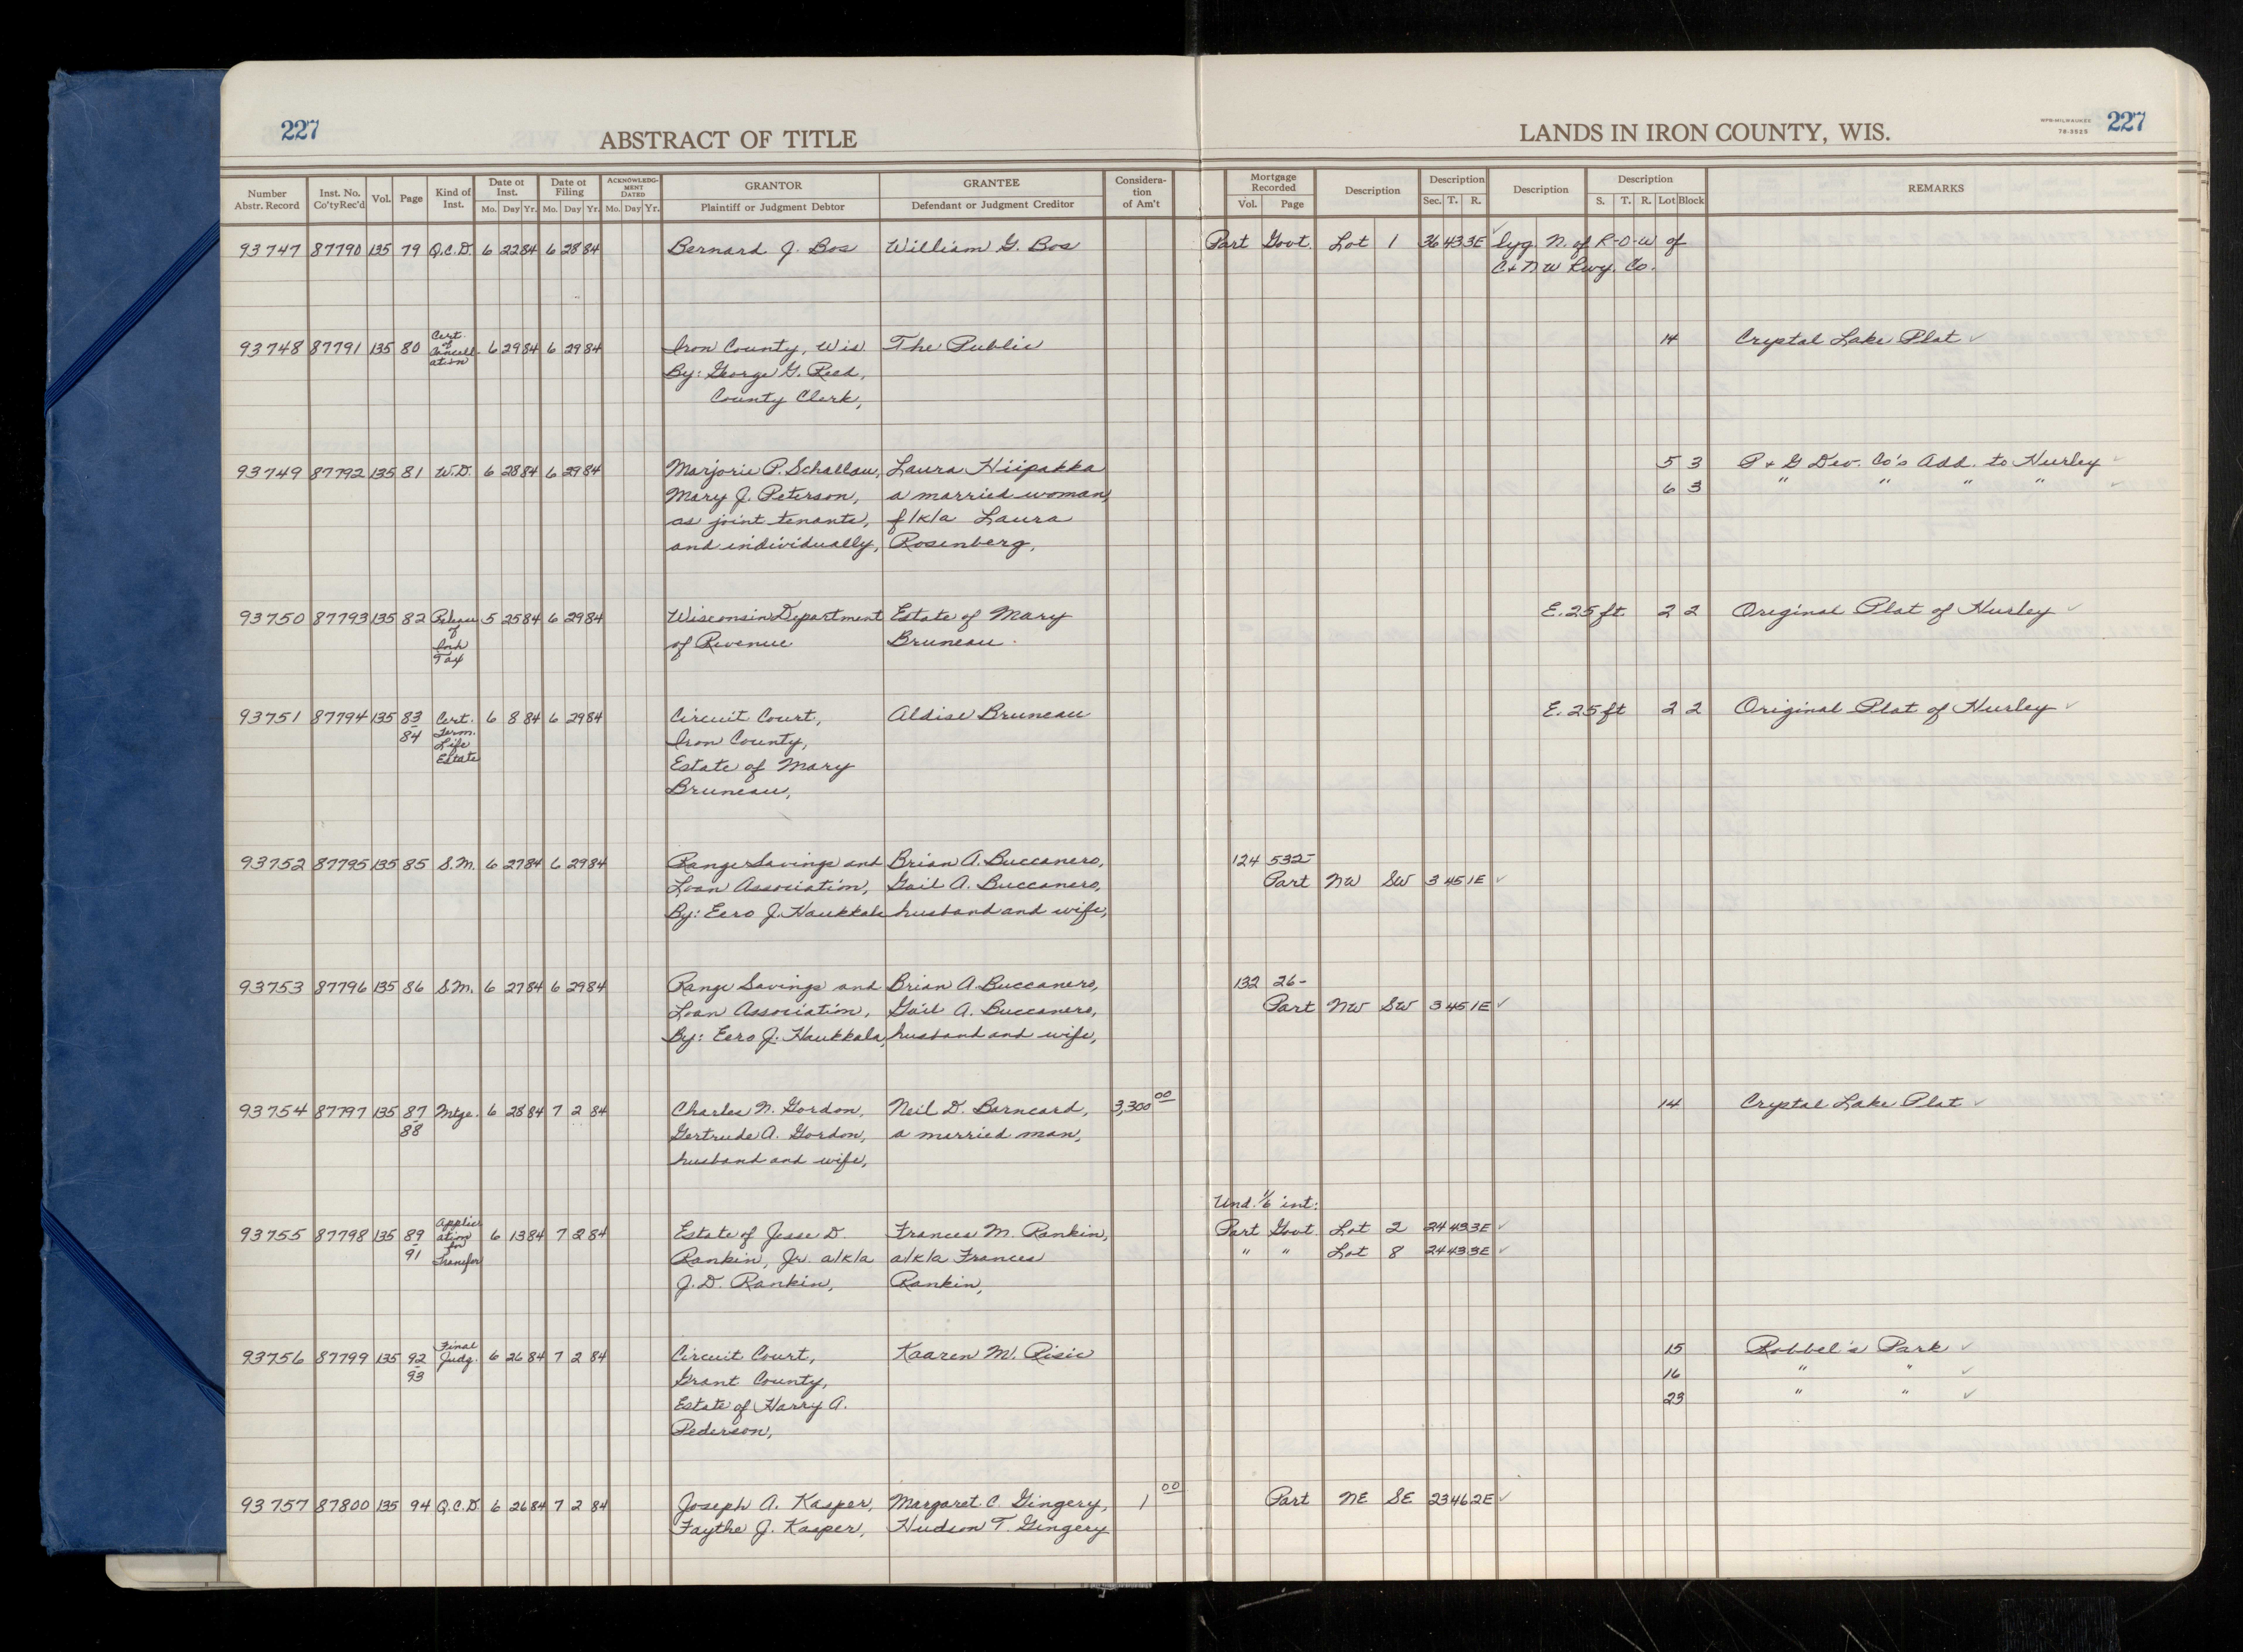 227
ABSTRACT OF TITLE
LANDS IN IRON COUNTY, WIS.
WPB-MILWAUKEE
78-3525
227
Number Abstr. Record | Inst. No. Co'tyRec'd | Vol. | Page | Kind of Inst. | Date of Inst. Mo. Day Yr. | Date of Filing Mo. Day Yr. | ACKNOWLEDGMENT DATED Mo. Day Yr. | GRANTOR Plaintiff or Judgment Debtor | GRANTEE Defendant or Judgment Creditor | Consideration of Am't | Mortgage Recorded Vol. Page | Description | Description Sec. T. R. | Description | Description S. T. R. Lot Block | REMARKS
93747 87790 135 79 Q.C.D. 6 22 84 6 28 84 Bernard J. Bos William G. Bos Part Govt. Lot 1 36 43 3E lyg. N. of R-O-W of
C+NW Rwy. Co.
93748 87791 135 80 Cert. of Cancellation 6 29 84 6 29 84 Iron County, Wis. The Public 14 Crystal Lake Plat ✓
By: George G. Reed,
County Clerk,
93749 87792 135 81 W.D. 6 28 84 6 29 84 Marjorie P. Schallau, Laura Hiipakka 5 3 P + G Dev. Co's Add. to Hurley ✓
Mary J. Peterson, a married woman, 6 3 " " " " ✓
as joint tenants, f/k/a Laura
and individually, Rosenberg,
93750 87793 135 82 Release of Inh Tax 5 25 84 6 29 84 Wisconsin Department Estate of Mary E. 25 ft. 2 2 Original Plat of Hurley ✓
of Revenue Bruneau.
93751 87794 135 83-84 Cert. Term. Life Estate 6 8 84 6 29 84 Circuit Court, Aldise Bruneau E. 25 ft 2 2 Original Plat of Hurley ✓
Iron County,
Estate of Mary
Bruneau,
93752 87795 135 85 S.M. 6 27 84 6 29 84 Range Savings and Brian A. Buccanero, 124 532-
Loan Association, Gail A. Buccanero, Part NW SW 3 45 1E ✓
By: Eero J. Haukkala husband and wife,
93753 87796 135 86 S.M. 6 27 84 6 29 84 Range Savings and Brian A. Buccanero, 132 26-
Loan Association, Gail A. Buccanero, Part NW SW 3 45 1E ✓
By: Eero J. Haukkala, husband and wife,
93754 87797 135 87-88 Mtge. 6 28 84 7 2 84 Charles N. Gordon, Neil D. Barneard, 3,300 00 14 Crystal Lake Plat ✓
Gertrude A. Gordon, a married man,
husband and wife,
Und. 1/6 int:
93755 87798 135 89-91 Application for Transfer 6 13 84 7 2 84 Estate of Jesse D. Frances M. Rankin, Part Govt Lot 2 24 43 3E ✓
Rankin, Jr. a/k/a a/k/a Frances " " Lot 8 24 43 3E ✓
J.D. Rankin, Rankin,
93756 87799 135 92-93 Final Judg. 6 26 84 7 2 84 Circuit Court, Kaaren M. Risic 15 Robbel's Park ✓
Grant County, 16 " " ✓
Estate of Harry A. 23 " " ✓
Pederson,
93757 87800 135 94 Q.C.D. 6 26 84 7 2 84 Joseph A. Kasper, Margaret C. Gingery, 1 00 Part NE SE 23 46 2E ✓
Faythe J. Kasper, Hudson T. Gingery